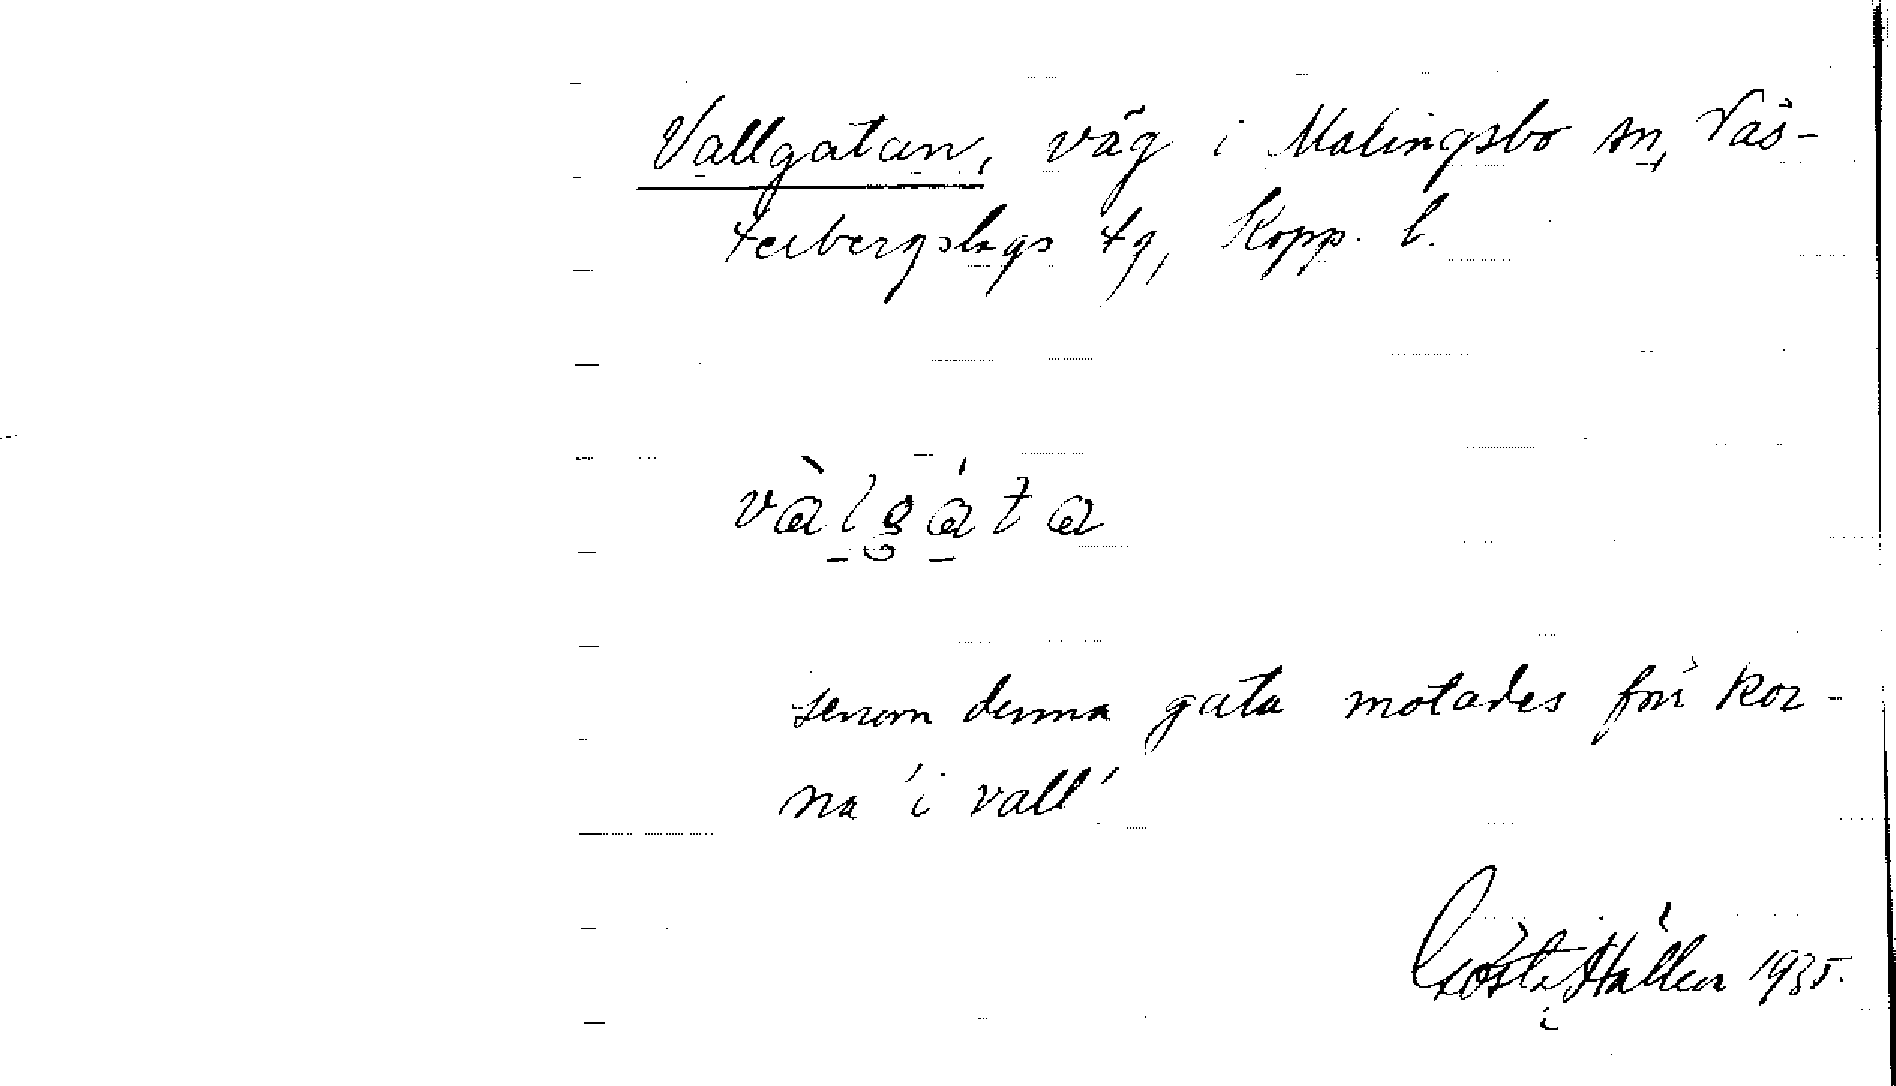 Vallgatan, väg i Malingsbo sn, Väs-
terbergslags tg, Kopp. l.
vàlgáta
Genom denna gata motades förr kor-
na 'i vall'
Gösta Hállen 1935.